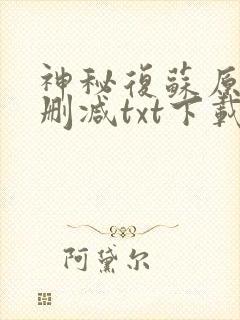 神秘復蘇原
刪减txt下載
阿黛尔